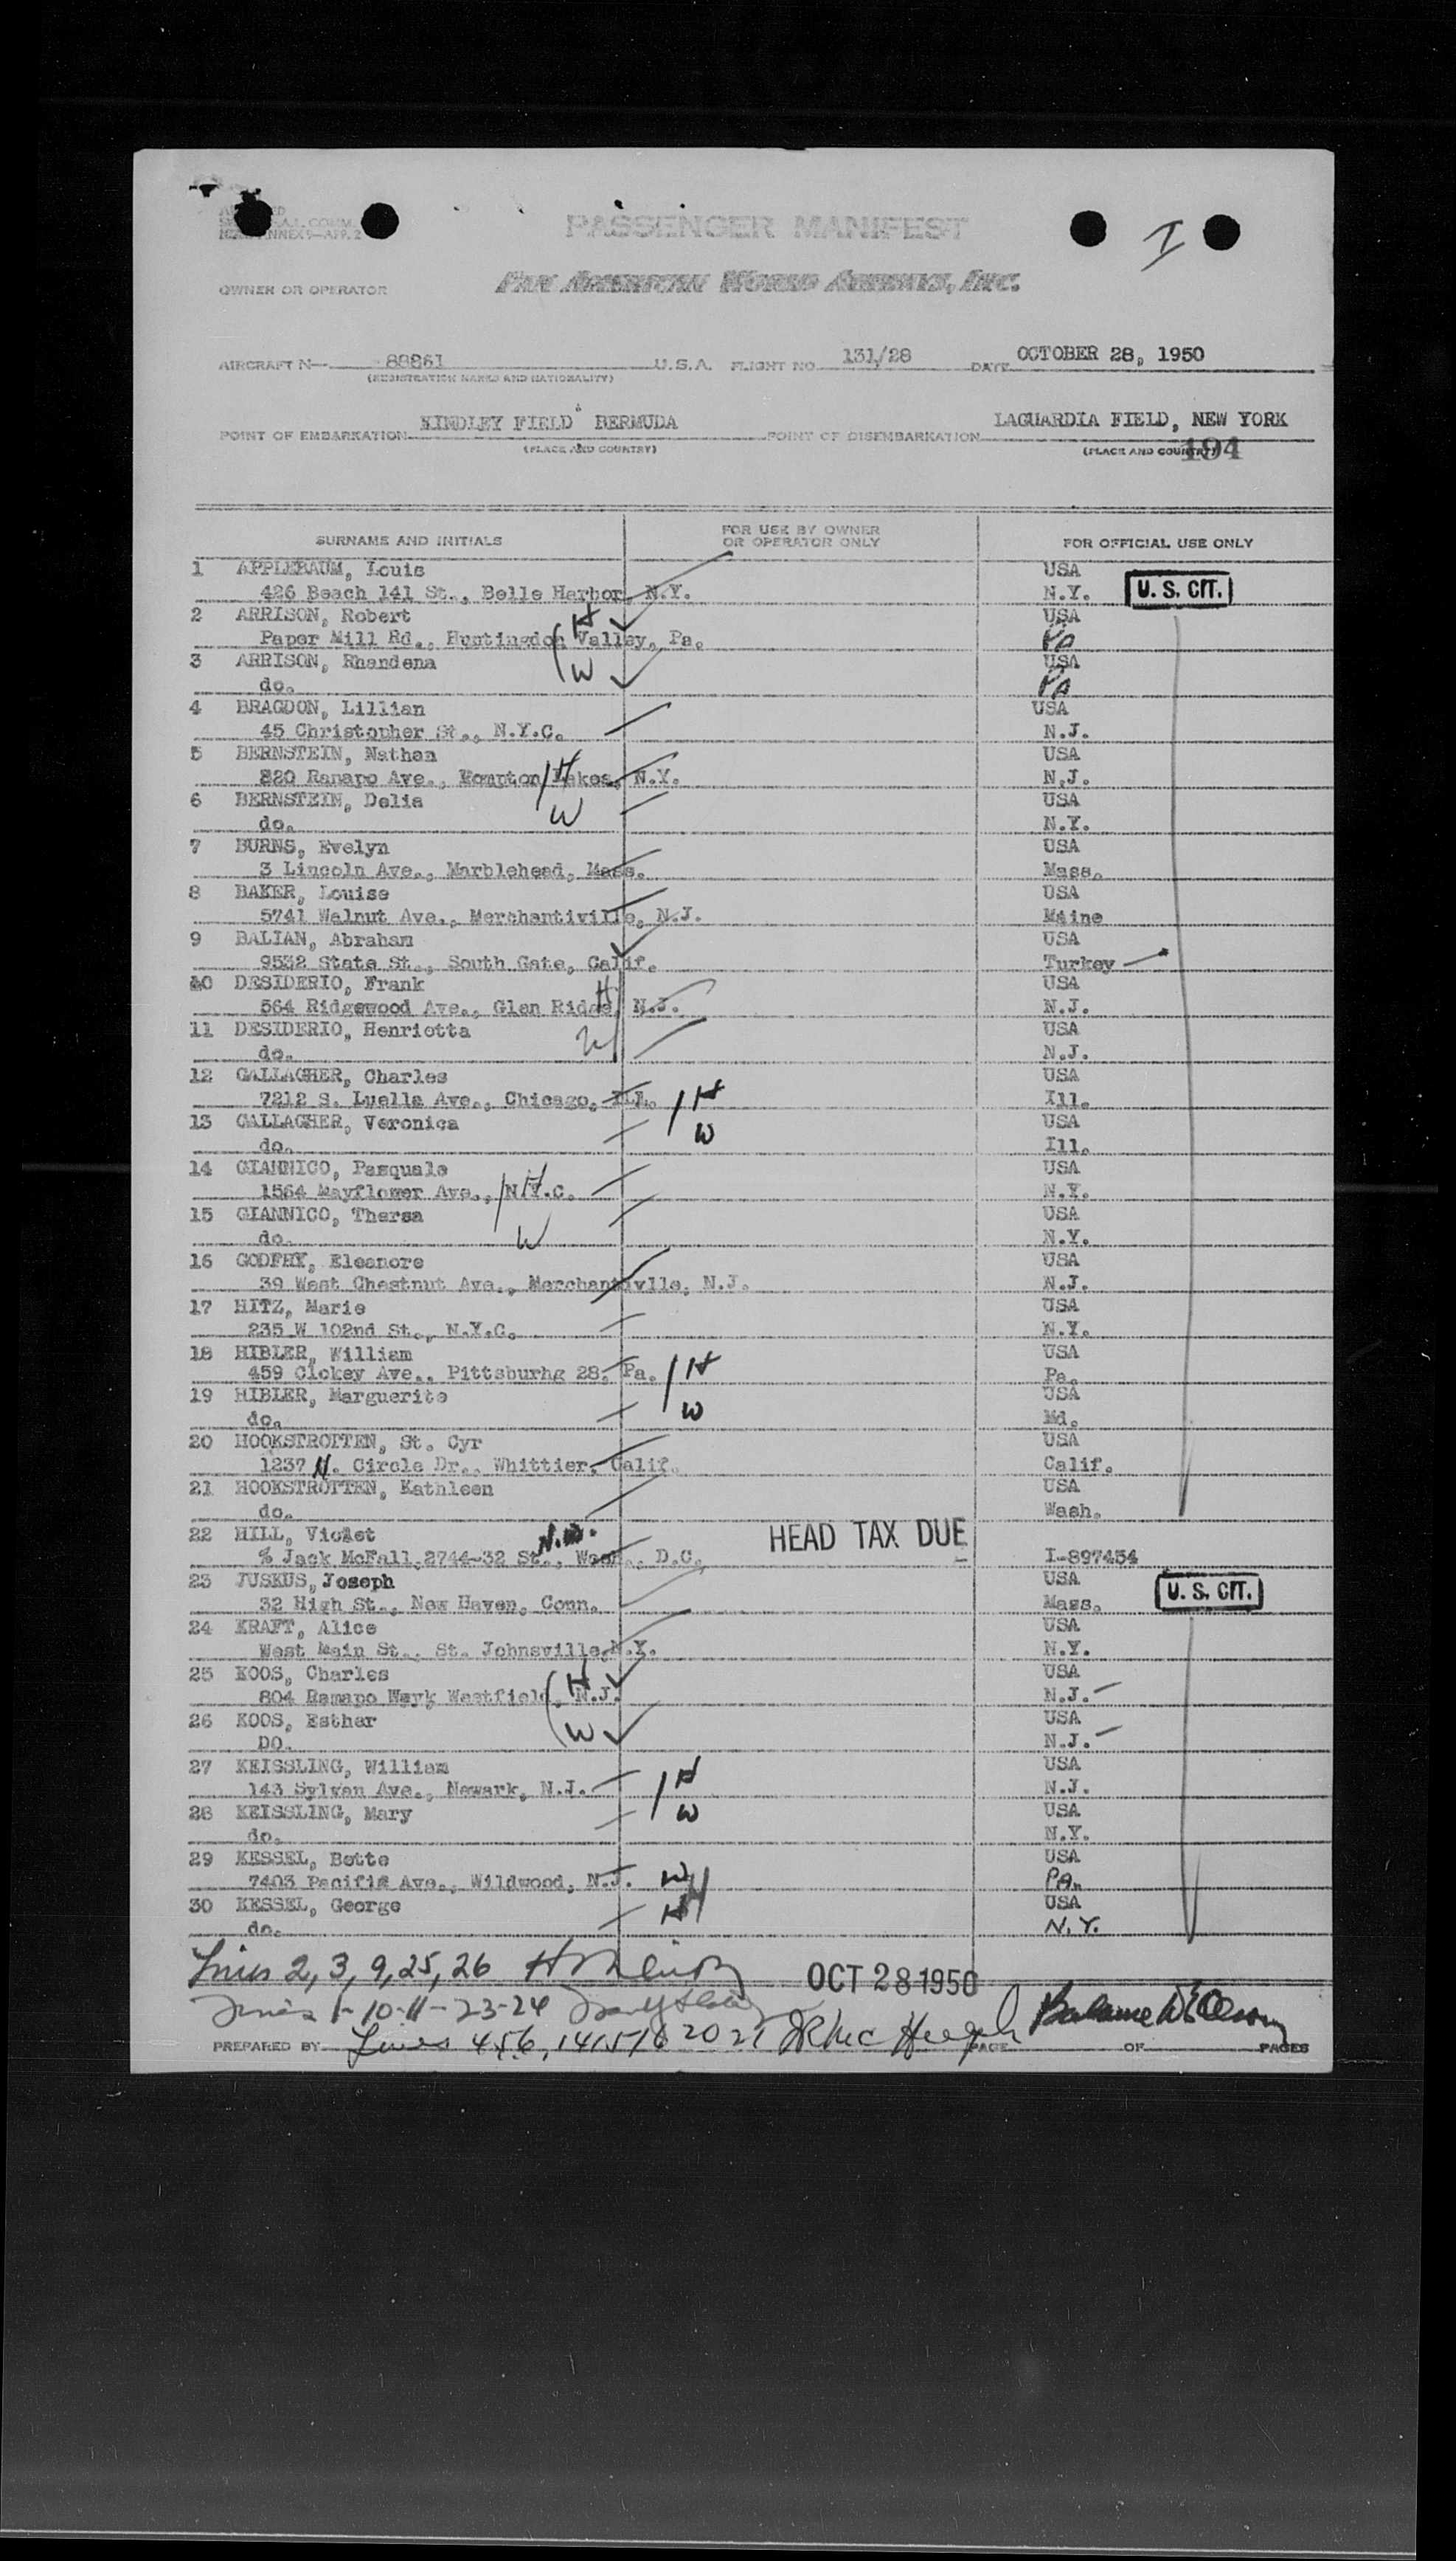 PASSENGER MANIFEST
I
OWNER OR OPERATOR PAN AMERICAN WORLD AIRWAYS, INC.
AIRCRAFT N— 88861 U.S.A. FLIGHT NO 131/28 DATE OCTOBER 28, 1950
(REGISTRATION MARKS AND NATIONALITY)
POINT OF EMBARKATION KINDLEY FIELD BERMUDA POINT OF DISEMBARKATION LAGUARDIA FIELD, NEW YORK
(PLACE AND COUNTRY) (PLACE AND COUNTRY) 194
SURNAME AND INITIALS FOR USE BY OWNER OR OPERATOR ONLY FOR OFFICIAL USE ONLY
1 APPLEBAUM, Louis USA
426 Beach 141 St., Belle Harbor, N.Y. N.Y. U. S. CIT.
2 ARRISON, Robert H USA
Paper Mill Rd., Huntingdon Valley, Pa. Pa
3 ARRISON, Rhandena W USA
do. Pa
4 BRAGDON, Lillian USA
45 Christopher St., N.Y.C. N.J.
5 BERNSTEIN, Nathan H USA
820 Ramapo Ave., Pompton Lakes, N.Y. N.J.
6 BERNSTEIN, Delia W USA
do. N.Y.
7 BURNS, Evelyn USA
3 Lincoln Ave., Marblehead, Mass. Mass.
8 BAKER, Louise USA
5741 Walnut Ave., Merchantiville, N.J. Maine
9 BALIAN, Abraham USA
9532 State St., South Gate, Calif. Turkey
10 DESIDERIO, Frank H USA
564 Ridgewood Ave., Glen Ridge, N.J. N.J.
11 DESIDERIO, Henriotta W USA
do. N.J.
12 GALLAGHER, Charles H USA
7212 S. Luella Ave., Chicago, Ill. Ill.
13 GALLAGHER, Veronica W USA
do. Ill.
14 GIANNICO, Pasquale H USA
1564 Mayflower Ave., N.Y.C. N.Y.
15 GIANNICO, Thersa W USA
do. N.Y.
16 GODFRY, Eleanore USA
39 West Chestnut Ave., Merchantivlle, N.J. N.J.
17 HITZ, Marie USA
235 W 102nd St., N.Y.C. N.Y.
18 HIBLER, William H USA
459 Cickey Ave., Pittsburhg 28, Pa. Pa.
19 HIBLER, Marguerite W USA
do. Md.
20 HOOKSTROTTEN, St. Cyr USA
1237 N. Circle Dr., Whittier, Calif. Calif.
21 HOOKSTROTTEN, Kathleen USA
do. Wash.
22 HILL, Violet N.W. HEAD TAX DUE
% Jack McFall, 2744-32 St., Wash., D.C. I-897454
23 JUSKUS, Joseph USA U. S. CIT.
32 High St., New Haven, Conn. Mass.
24 KRAFT, Alice USA
West Main St., St. Johnsville, N.Y. N.Y.
25 KOOS, Charles H USA
804 Ramapo Wayk Westfield, N.J. N.J.
26 KOOS, Esther W USA
DO. N.J.
27 KEISSLING, William H USA
143 Sylvan Ave., Newark, N.J. N.J.
28 KEISSLING, Mary W USA
do. N.Y.
29 KESSEL, Bette W USA
7403 Pacific Ave., Wildwood, N.J. Pa.
30 KESSEL, George H USA
do. N.Y.
Lines 2, 3, 9, 25, 26 OCT 28 1950
Lines 1-10-11-23-24
PREPARED BY Lines 4 5 6, 14 15 16 20 21 PAGE OF PAGES